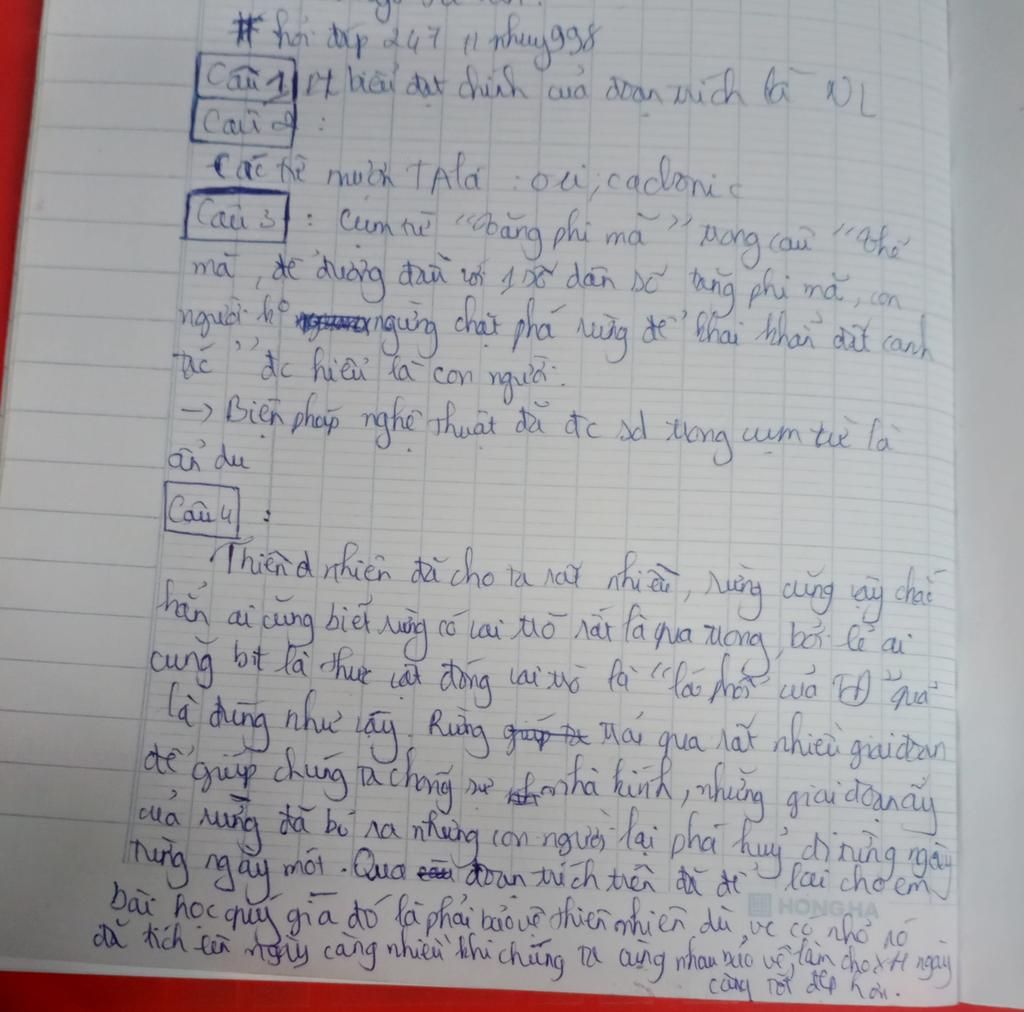 # hỏi đáp 247 // nhuy998
Câu 1 Pt biểu đạt chính của đoạn trích là NL
Câu 2 :
Các từ mượn TA là : oxi, cacbonic
Câu 3 : Cụm từ "tăng phi mã" trong câu "thế
mà, để đương đầu với 1 số dân số tăng phi mã, con
người k° ngừng chặt phá rừng để khai khẩn đất canh
tác" đc hiểu là con người.
→ Biện pháp nghệ thuật đã đc sd trong cụm từ là
ẩn dụ
Câu 4 :
Thiên nhiên đã cho ta rất nhiều, rừng cũng vậy chắc
hẳn ai cũng biết rừng có vai trò rất là qua trọng, bởi lẽ ai
cũng bít là thực vật đóng vai trò là "lá phổi" của TĐ quả
là đúng như vậy. Rừng trải qua rất nhiều giai đoạn
để giúp chúng ta chống sự nhà kính, những giai đoạn ấy
của rừng đã bỏ ra nhưng con người lại phá huỷ đi từng ngày
từng ngày một. Qua đoạn trích trên đã để lại cho em
bài học quý giá đó là phải bảo vệ thiên nhiên dù, vc có nhỏ nó
đã tích lên ngày càng nhiều khi chúng ta cùng nhau bảo vệ, làm cho XH ngày
càng tốt đẹp hơn.
HONG HA